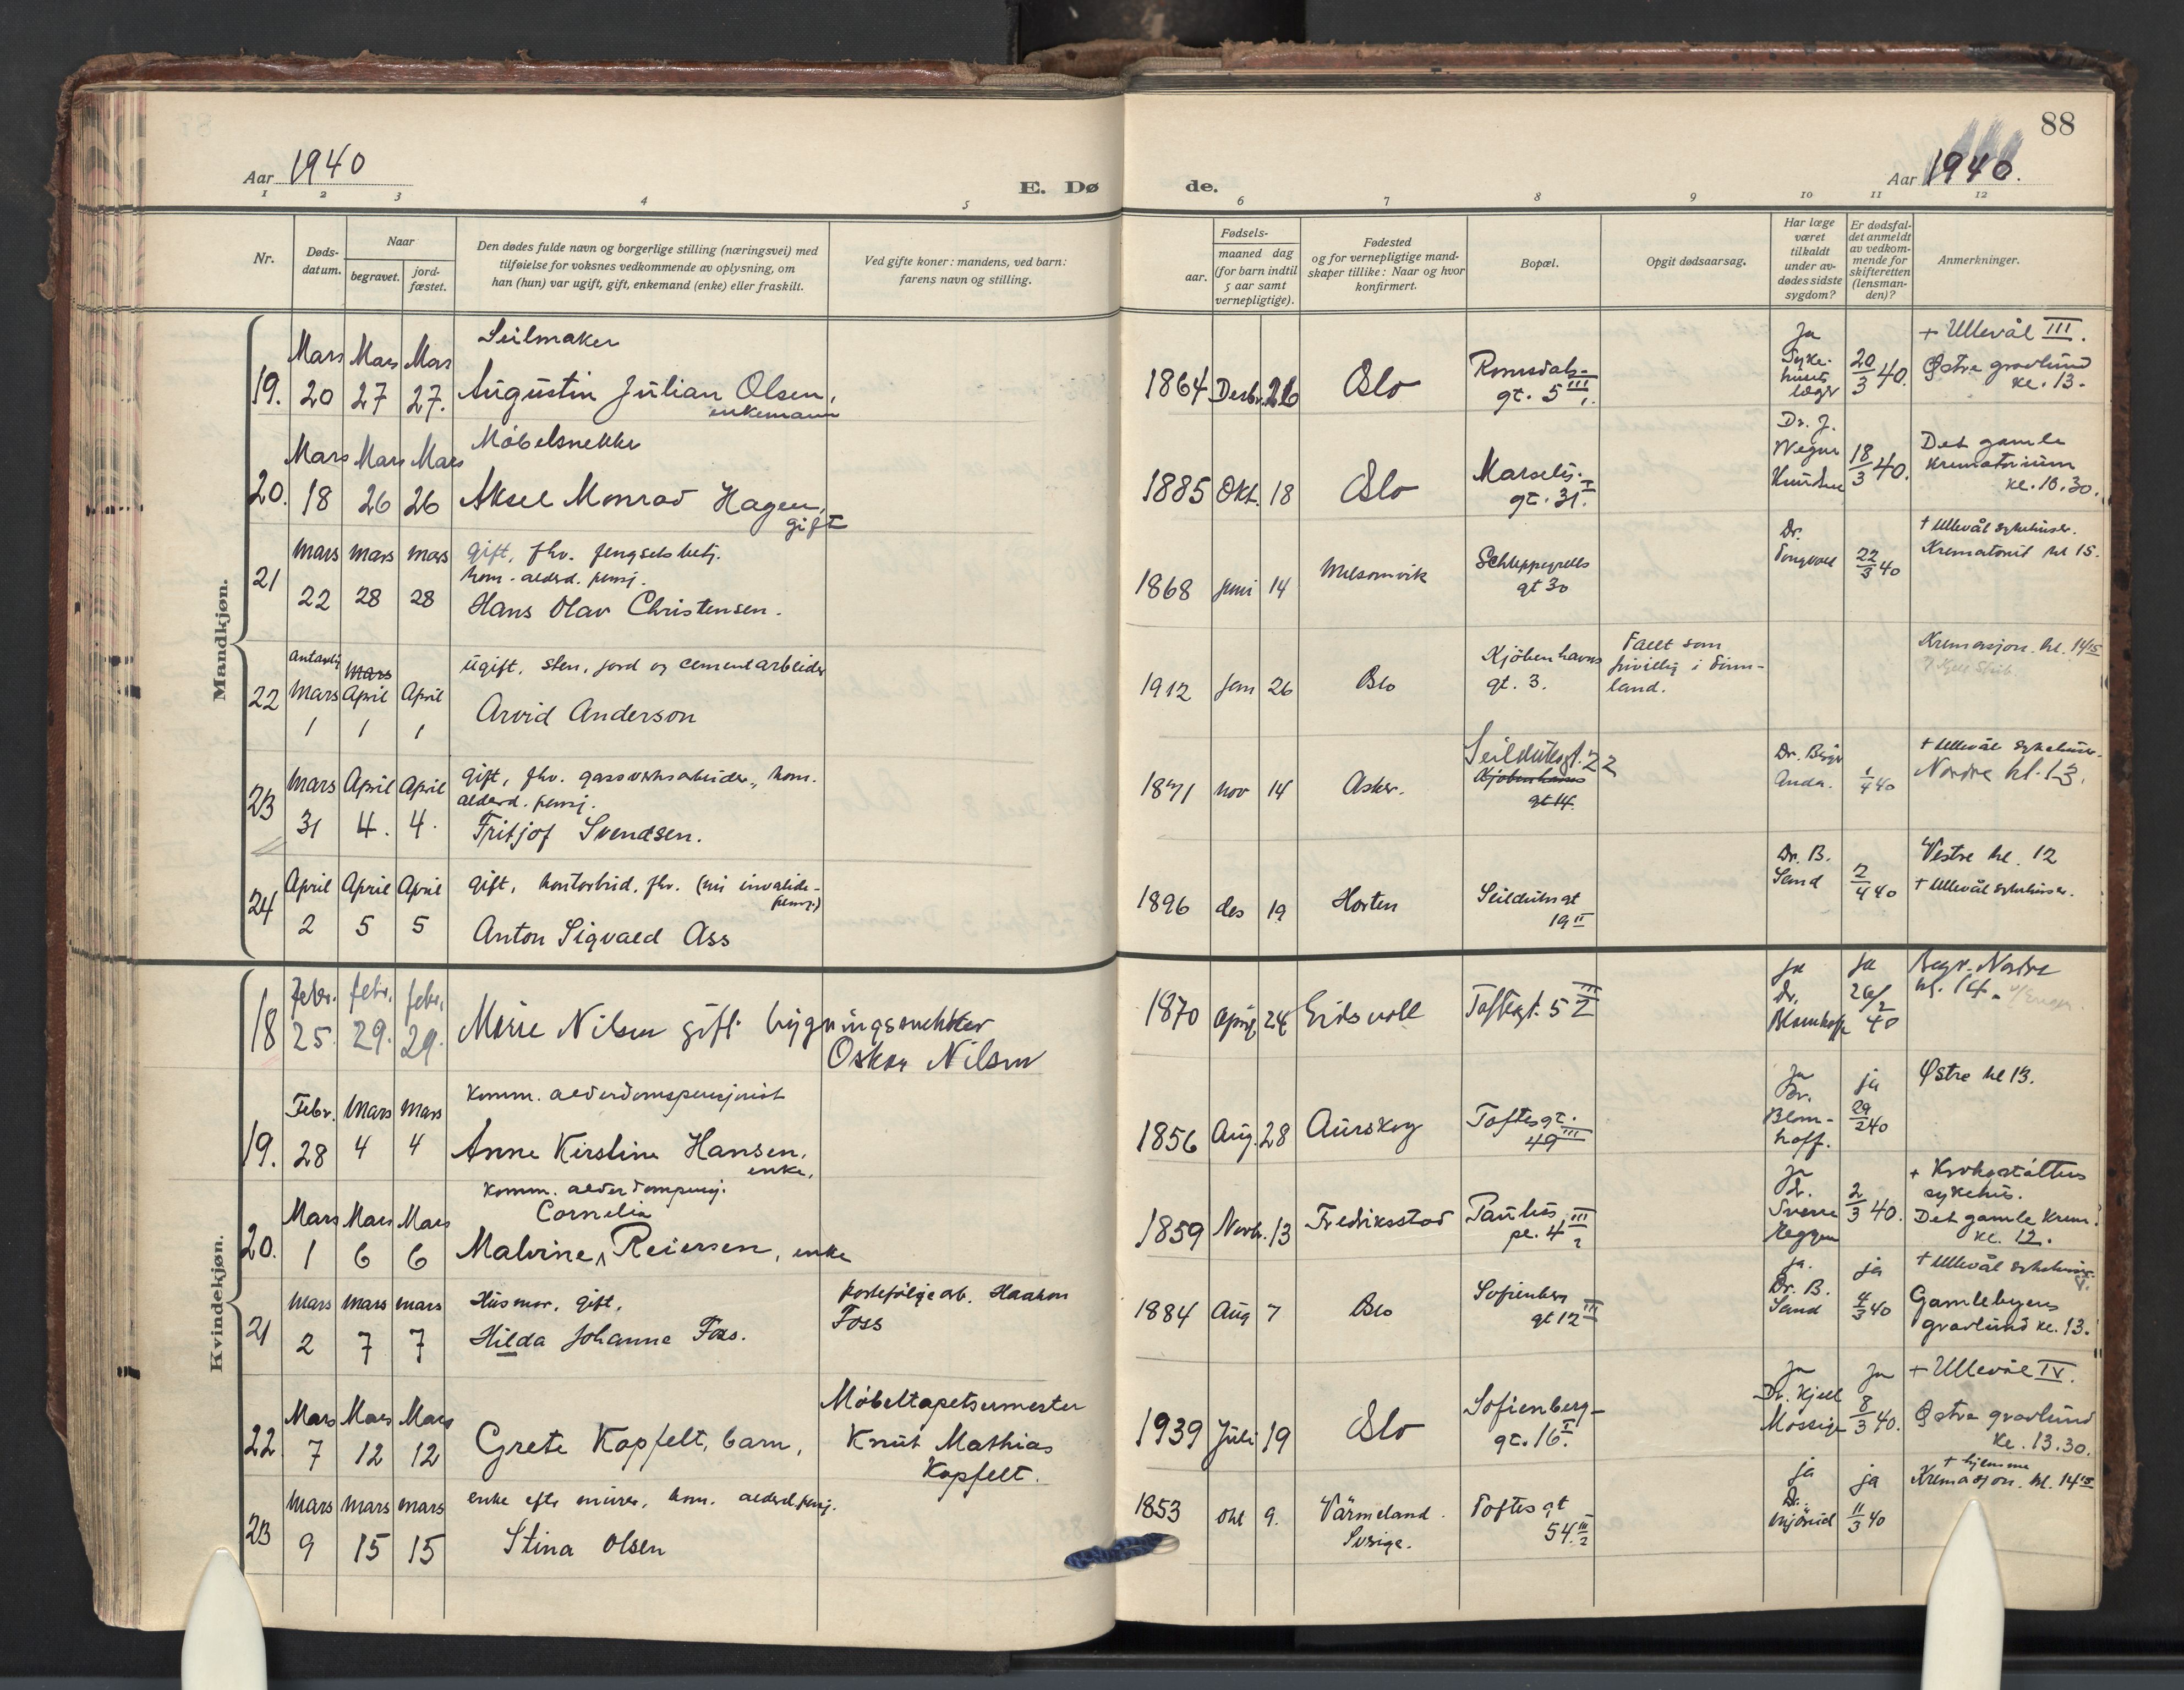 88
Aar 1940
E. Dø de.
Aar 1940.
1 2 3 4 5 6 7 8 9 10 11 12
Nr.
Døds-
datum.
Naar
begravet.
jord-
fæstet.
Den dødes fulde navn og borgerlige stilling (næringsvei) med
tilføielse for voksnes vedkommende av oplysning, om
han (hun) var ugift, gift, enkemand (enke) eller fraskilt.
Ved gifte koner: mandens, ved barn:
farens navn og stilling.
Fødsels-
aar.
maaned dag
(for barn indtil
5 aar samt
vernepligtige).
Fødested
og for vernepligtige mand-
skaper tillike: Naar og hvor
konfirmert.
Bopæl.
Opgit dødsaarsag.
Har læge
været
tilkaldt
under av-
dødes sidste
sygdom?
Er dødsfal-
det anmeldt
av vedkom-
mende for
skifteretten
(lensman-
den)?
Anmerkninger.
Mandkjøn.
19. Mars 20 Mars 27 Mars 27.
Seilmaker
Augustin Julian Olsen,
enkemann
1864 Desbr. 26 Oslo
Romsdals-
gt. 5 III
Ja
Syke-
husets
læge
20/3 40.
+ Ullevål III.
Østre gravlund
kl. 13.
20. Mars 18 Mars 26 Mars 26
Møbelsnekker
Aksel Monrad Hagen,
gift
1885 Okt. 18 Oslo
Marselis-
gt. 31 I.
Dr. J.
18/3 40.
Det gamle
krematorium
kl. 10.30.
21 Mars 22 mars 28 mars 28
gift, fhv. fengselsbetj.
kom. alderd. pensj.
Hans Olav Christensen.
1868 juni 14 Melsomvik
Schleppegrells
gt 30
Dr.
22/3 40
+ Ullevål sykehuser.
Krematoriet kl 15.
22 antagelig Mars 1 mars April 1 April 1
ugift, sten, jord og cementarbeider
Arvid Anderson
1912 jan 26 Oslo
Kjøbenhavns
gt. 3.
Falt som
frivillig i Finn-
land.
Kremasjon. kl. 14 15
23 Mars 31 April 4. April 4.
gift, fhv. gassverksarbeider, kom.
alderd. pensj.
Fritjof Svendsen.
1871 nov 14 Asker.
Seilduksgt. 22
Kjøbenhavns
gt 14.
Dr. Birger
Anda.
1/4 40
+ Ullevål sykehuser.
Nordre kl. 13.
24 April 2 April 5 April 5
gift, kontorbud, fhv. (nu invalide-
pensj.)
Anton Sigvald Ass
1896 des 19 Horten
Seilduksgt
19 II
Dr. B.
Sand
2/4 40
Vestre kl. 12
+ Ullevål sykehuser.
Kvindekjøn.
18 Febr. 25. febr. 29. febr. 29.
Marie Nilsen gift bygningssnekker
Oskar Nilsen
1870 April 24 Eidsvoll
Toftesgt. 5 III/2
Ja
Dr.
Blomhoff
Ja
26/2
40
Begr. Nordre
kl. 14.
19. Febr. 28 Mars 4 Mars 4
Komm. alderdomspensjonist
Anne Kirstine Hansen,
enke.
1856 Aug. 28 Aurskog
Toftesgt.
49 III
Ja
Dr.
Blom-
hoff.
ja
29/2 40
Østre kl 13.
20. Mars 1 Mars 6 Mars 6
Komm. alderdomspensj.
Cornelia
Malvine, Reiersen, enke
1859 Novb. 13 Fredriksstad
Paulus
pl. 4 III/2
Ja
Dr.
Sverre
2/3 40.
+ Krohgstøttens
sykehus.
Det gamle Krem.
kl. 12.
21 Mars 2 mars 7 mars 7
Husmor, gift,
Hilda Johanne Foss.
portefølgearb. Haakon
Foss
1884 Aug 7 Oslo
Sofienberg
gt 12 III
ja.
Dr. B.
Sand
ja
4/3 40
+ Ullevål sykehus
V.
Gamlebyens
gravlund kl. 13.
22. Mars 7 Mars 12 Mars 12
Grete Kopfelt, barn,
Møbeltapetsermester
Knut Mathias
Kopfelt.
1939 Juli 19 Oslo
Sofienberg-
gt. 16 I.
Ja
Dr. Kjell
Mossige
Ja
8/3 40.
+ Ullevål IV.
Østre gravlund
kl. 13.30.
23 mars 9 mars 15 mars 15
enke efter murer, kom. alderd.pensj.
Stina Olsen
1853 okt 9. Värmeland.
Sverige.
Toftes gt
54 III/2
ja
Dr.
Mjøsund
ja
11/3 40
+ hjemme
Kremasjon. kl. 14 15